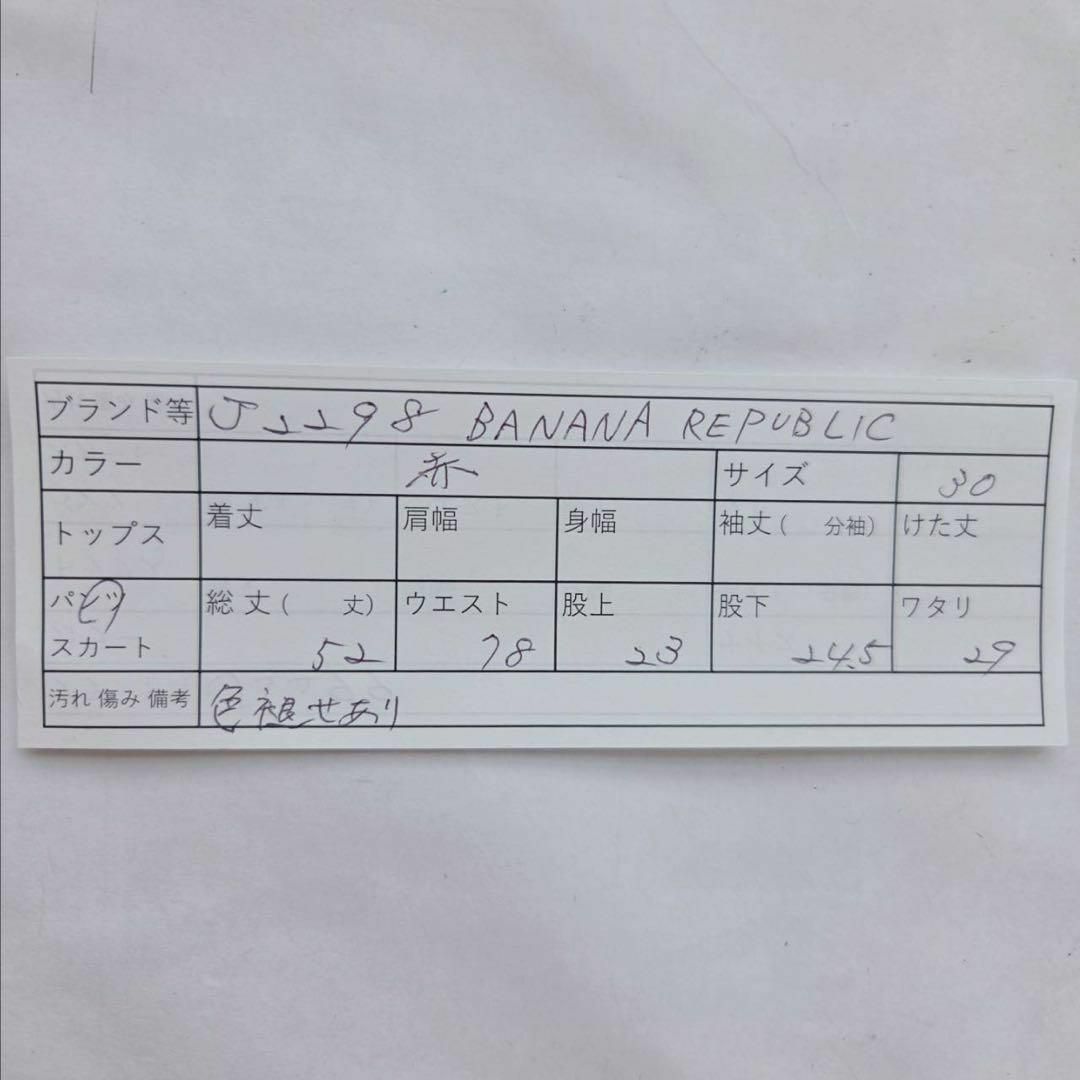 ブランド等 J2298 BANANA REPUBLIC
カラー 赤 サイズ 30
トップス 着丈 肩幅 身幅 袖丈( 分袖) けた丈
パンツ 総丈( 丈) ウエスト 股上 股下 ワタリ
スカート 52 78 23 24.5 29
汚れ 傷み 備考 色褪せあり